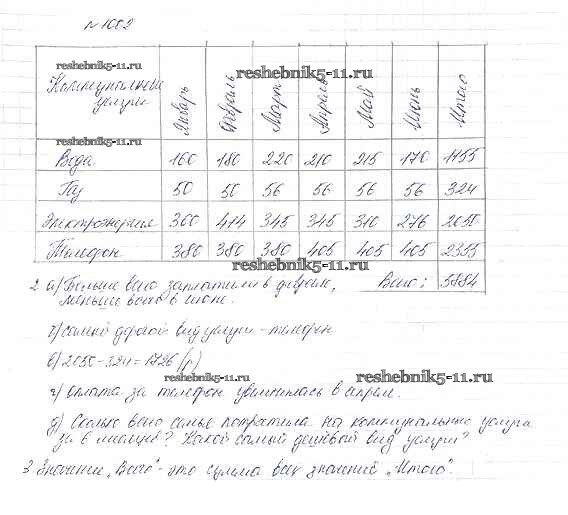 № 1002
reshebnik5-11.ru
reshebnik5-11.ru
Коммунальные услуги Январь Февраль Март Апрель Май Июнь Итого
reshebnik5-11.ru
reshebnik5-11.ru
Вода 160 180 220 210 215 170 1155
Газ 50 50 56 56 56 56 324
Электроэнергия 300 414 345 345 310 276 2050
Телефон 380 380 380 405 405 405 2355
reshebnik5-11.ru
2 а) Больше всего заплатили в феврале, Всего: 5884
меньше всего в июне.
б) самый дорогой вид услуги - телефон
в) 2050-324=1726 (р)
reshebnik5-11.ru
reshebnik5-11.ru
г) оплата за телефон увеличилась в апреле.
д) Сколько всего семья потратила на коммунальные услуги
за 6 месяцев? Какой самый дешёвый вид услуги?
3 Значение „Всего" - это сумма всех значений „Итого".